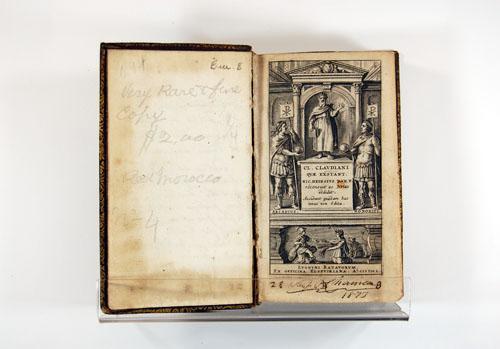 Very Rare & fine
Copy
$2.00
Red Morocco
4
CL. CLAUDIANI
QUÆ EXSTANT.
NIC. HEINSIUS DAN. F.
recensuit ac Notas
addidit.
Accedunt quædam hac-
tenus non edita.
ARCADIUS.
HONORIUS.
LUGDUNI BATAVORUM.
EX OFFICINA ELZEVIRIANA. Aº CIƆIƆCL
28
8
1877